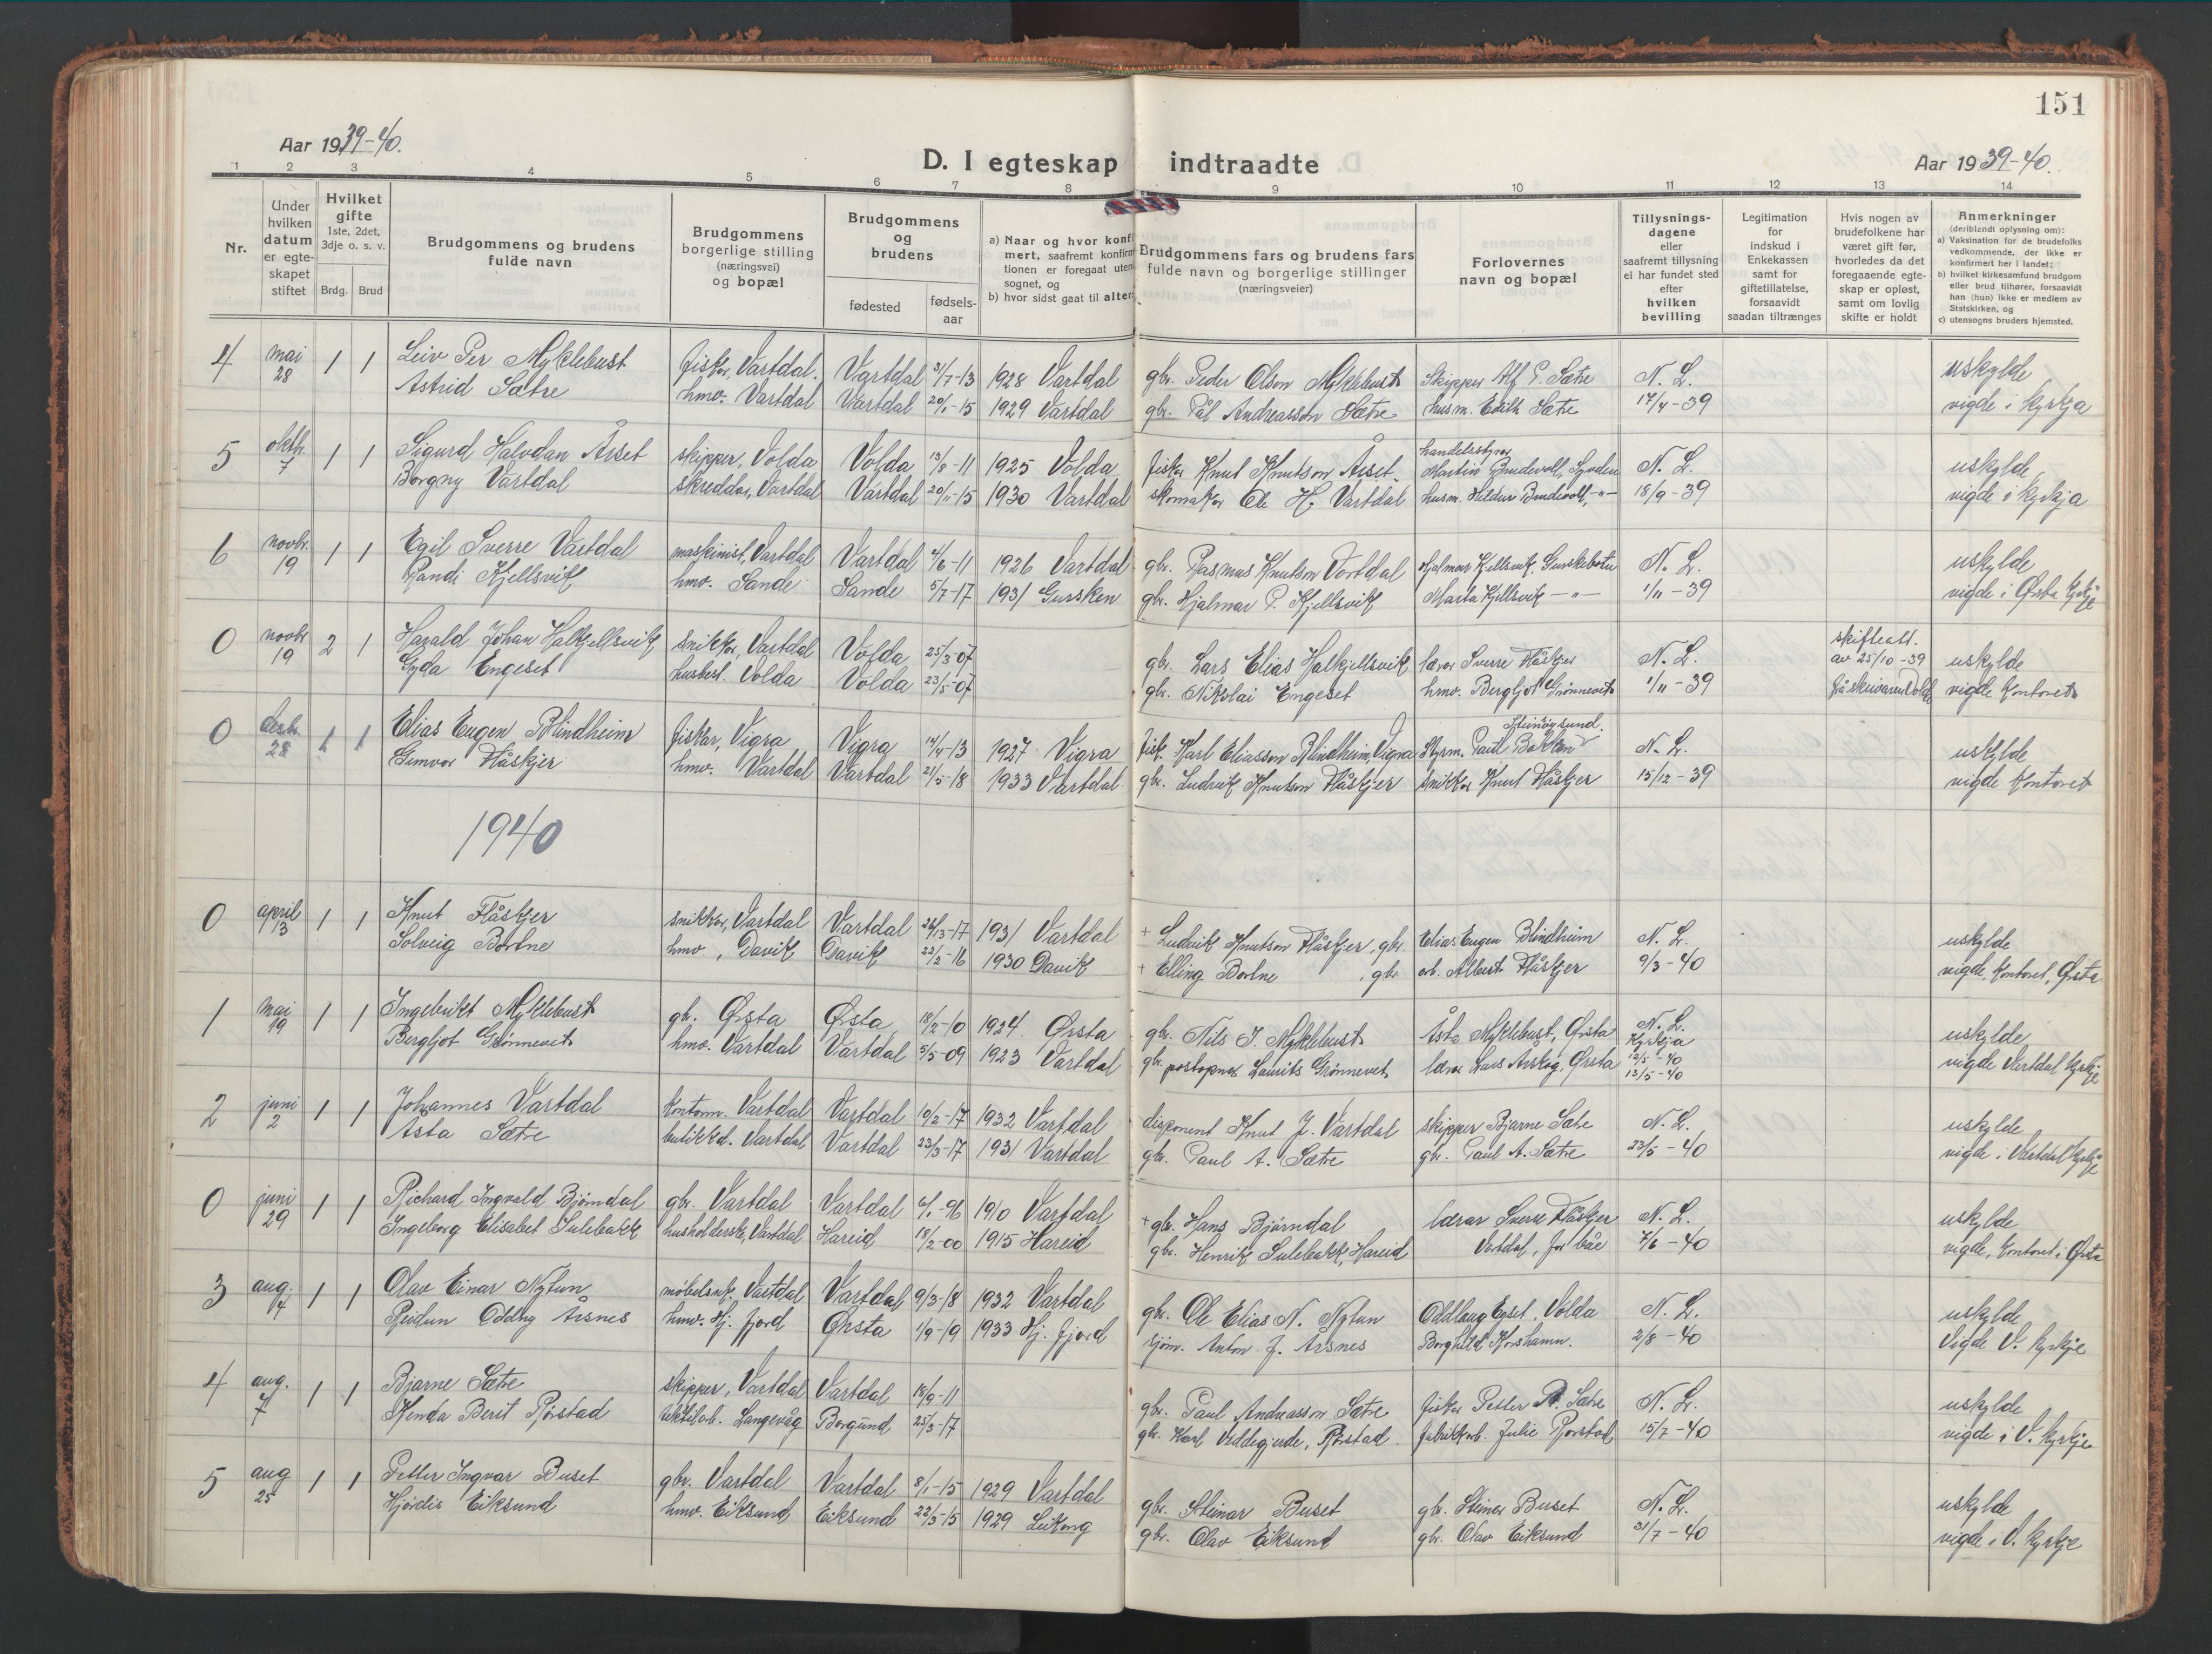 151
Aar 1939-40.
D. I egteskap indtraadte
Aar 1939-40.
1 2 3 4 5 6 7 8 9 10 11 12 13 14
Nr.
Under hvilken datum er egteskapet stiftet
Hvilket gifte 1ste, 2det, 3dje o. s. v.
Brdg. Brud
Brudgommens og brudens fulde navn
Brudgommens borgerlige stilling (næringsvei) og bopæl
Brudgommens og brudens
fødested fødsels-aar
a) Naar og hvor konfirmert, saafremt konfirmtionen er foregaat uten sognet, og
b) hvor sidst gaat til alters
Brudgommens fars og brudens fars fulde navn og borgerlige stillinger (næringsveier)
Forlovernes navn og bopæl
Tillysnings-dagene eller saafremt tillysning ei har fundet sted efter hvilken bevilling
Legitimation for indskud i Enkekassen samt for giftetillatelse, forsaavidt saadan tiltrænges
Hvis nogen av brudefolkene har været gift før, hvorledes da det foregaaende egteskap er opløst, samt om lovlig skifte er holdt
Anmerkninger (deriblandt oplysning om):
a) Vaksination for de brudefolks vedkommende, der ikke er konfirmert her i landet;
b) hvilket kirkesamfund brudgom eller brud tilhører, forsaavidt han (hun) ikke er medlem av Statskirken, og
c) utensogns bruders hjemsted.
4 mai 28 1 1 Leiv Per Myklebust fisker, Vartdal. Vartdal 31/7-13 1928 Vartdal gbr. Peder Olson Myklebust Skipper Alf P. Sætre N. L. uskylde
Astrid Sætre hmv. Vartdal Vartdal 20/1-15 1929 Vartdal gbr. Pål Andreasson Sætre husm. Edith Sætre 17/4-39 vigde i kyrkja
5 oktbr. 7 1 1 Sigurd Halvdan Årset skipper, Volda Volda 13/8-11 1925 Volda fisker Knut Knutson Årset. handelsstyrer Martin Brudevoll, N. L. uskylde
Borgny Vartdal skreddar, Vartdal Vartdal 20/11-15 1930 Vartdal skomaker Ole H. Vartdal husm. Hildur Brudevoll, -"- 18/9-39 vigde i kyrkja
6 novbr. 19 1 1 Egil Sverre Vartdal maskinist, Vartdal Vartdal 4/6-11 1926 Vartdal gbr. Rasmus Knutson Vartdal Hjalmar Kjellsvik, Gurskebotn N. L. uskylde
Randi Kjellsvik hmv. Sande Sande 5/7-17 1931 Gursken gbr. Hjalmar P. Kjellsvik Marta Kjellsvik -"- 1/11-39 vigde i Ørsta kyrkje
0 novbr 19 2 1 Harald Johan Halkjellsvik snikkar, Vartdal Volda 25/3-07 gbr. Lars Elias Halkjellsvik lærar Sverre Flåskjer N. L. skifteatt. av 25/10-39 uskylde
Gyda Engeset husbest. Volda Volda 23/5-07 gbr. Nikolai Engeset hmv. Bergljot Grønnevet 1/11-39 frå skrivaren Volda vigde kontoret
0 desbr. 28 1 1 Elias Eugen Blindheim fiskar, Vigra Vigra 14/4-13 1927 Vigra fisk. Karl Eliasson Blindheim, Vigra Styrm. Paul Bakken Steinsøysund. N. L. uskylde
Gunvor Flåskjer hmv. Vartdal Vartdal 21/5-18 1933 Vartdal gbr. Ludvik Knutson Flåskjer snikkar Knut Flåskjer 15/12-39 vigde kontoret
1940
0 april 13 1 1 Knut Flåskjer snikkar, Vartdal Vartdal 1931 Vartdal + Ludvik Knutson Flåskjer, gbr. Elias Eugen Blindheim N. L. uskylde
Solveig Bortne hmv., Davik Davik 22/2-16 1930 Davik + Elling Bortne, gbr. arb. Albert Flåskjer 9/3-40 vigde, kontoret, Ørsta
1 mai 19 1 1 Ingebrikt Myklebust gb. Ørsta Ørsta 18/2-10 1924 Ørsta gbr. Nils J. Myklebust Åsta Myklebust, Ørsta N. L. Kyrkja uskylde
Bergljot Grønnevet hmv. Vartdal Vartdal 5/5-09 1923 Vartdal gbr. postopnar Laurits Grønnevet lærar Lars Årskog, Ørsta 12/5-40 13/5-40 vigde Vartdal kyrkje
2 juni 2 1 1 Johannes Vartdal kontorm. Vartdal Vartdal 10/2-17 1932 Vartdal disponent Knut J. Vartdal skipper Bjarne Sætre N. L. uskylde
Asta Sætre butikkd. Vartdal Vartdal 23/3-17 1931 Vartdal gbr. Paul A. Sætre gbr. Paul A. Sætre 23/5-40 vigde i Vartdal kyrkje
0 juni 29 1 1 Richard Ingvald Bjørndal gbr. Vartdal Vartdal 6/1-96 1910 Vartdal + gbr. Hans Bjørndal lærar Sverre Flåskjer N. L. uskylde
Ingeborg Elisabet Sulebakk husholderske, Vartdal Hareid 18/2-00 1915 Hareid gbr. Henrik Sulebakk, Hareid Vartdal, for båe 7/6-40 vigde, kontoret, Ørsta
3 aug. 4 1 1 Olav Einar Nytun møbelsnk. Vartdal Vartdal 9/3-18 1932 Vartdal gbr. Ole Elias N. Nytun Oddlaug Egset, Volda N. L. uskylde
Reidun Oddny Årsnes hmv. Hj. fjord Ørsta 1/9-19 1933 Hj. fjord sjøm. Anton J. Årsnes Borghild Korshamn. 2/8-40 Vigde V. kyrkje
4 aug. 7 1 1 Bjarne Sætre skipper, Vartdal Vartdal 18/9-11 gbr. Paul Andreasson Sætre fisker Petter P. Sætre N. L. uskylde
Kenda Berit Rørstad tekstilarb. Langevåg Borgund 25/3-17 gbr. Karl Veddegjerde, Rørstad fabrikkarb. Julie Rørstad 15/7-40 vigde i V. kyrkje
5 aug 25 1 1 Petter Ingvar Buset gbr. Vartdal Vartdal 8/1-15 1929 Vartdal gbr. Steinar Buset gbr. Steinar Buset N. L. uskylde
Hjørdis Eiksund hmv. Eiksund Eiksund 22/3-15 1929 Leikong gbr. Olav Eiksund gbr. Olav Eiksund 31/7-40 vigde i V. kyrkje